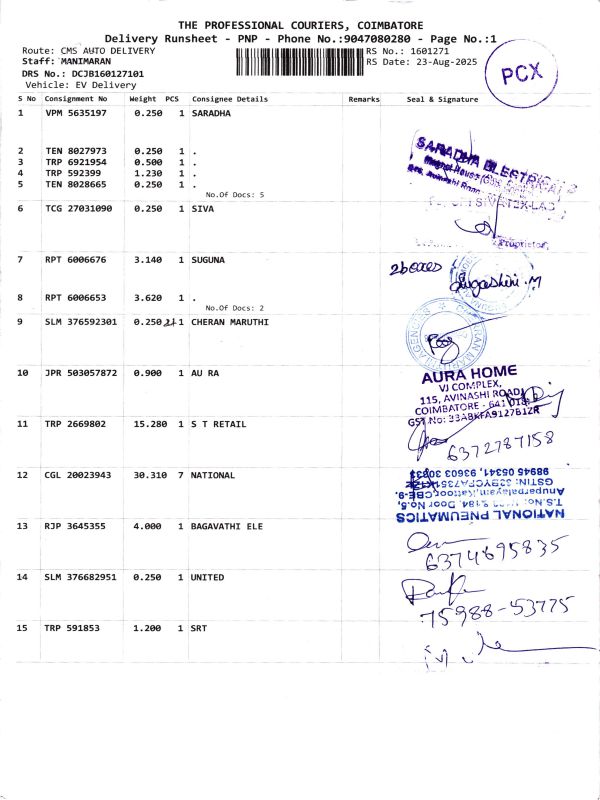 THE PROFESSIONAL COURIERS, COIMBATORE
Delivery Runsheet - PNP - Phone No.:9047080280 - Page No.:1
Route: CMS AUTO DELIVERY
RS No.: 1601271
Staff: MANIMARAN
RS Date: 23-Aug-2025
DRS No.: DCJB160127101
Vehicle: EV Delivery
PCX
S No Consignment No Weight PCS Consignee Details Remarks Seal & Signature
1 VPM 5635197 0.250 1 SARADHA
2 TEN 8027973 0.250 1 .
3 TRP 6921954 0.500 1 .
4 TRP 592399 1.230 1 .
5 TEN 8028665 0.250 1 .
No.Of Docs: 5
SARADHA ELECTRICALS
6 TCG 27031090 0.250 1 SIVA
Proprietor
7 RPT 6006676 3.140 1 SUGUNA
2 boxes
8 RPT 6006653 3.620 1 .
No.Of Docs: 2
9 SLM 376592301 0.250 1 CHERAN MARUTHI
AGENCIES
10 JPR 503057872 0.900 1 AU RA
AURA HOME
VJ COMPLEX,
115, AVINASHI ROAD,
COIMBATORE - 641 018
GST No: 33ABKFA9127B1ZR
11 TRP 2669802 15.280 1 S T RETAIL
6372787158
12 CGL 20023943 30.310 7 NATIONAL
NATIONAL PNEUMATICS
Door No.5,
Anupparpalayam, Kattoor, CBE-9.
98945 05341, 93603 30931
13 RJP 3645355 4.000 1 BAGAVATHI ELE
6374695835
14 SLM 376682951 0.250 1 UNITED
75988-53775
15 TRP 591853 1.200 1 SRT